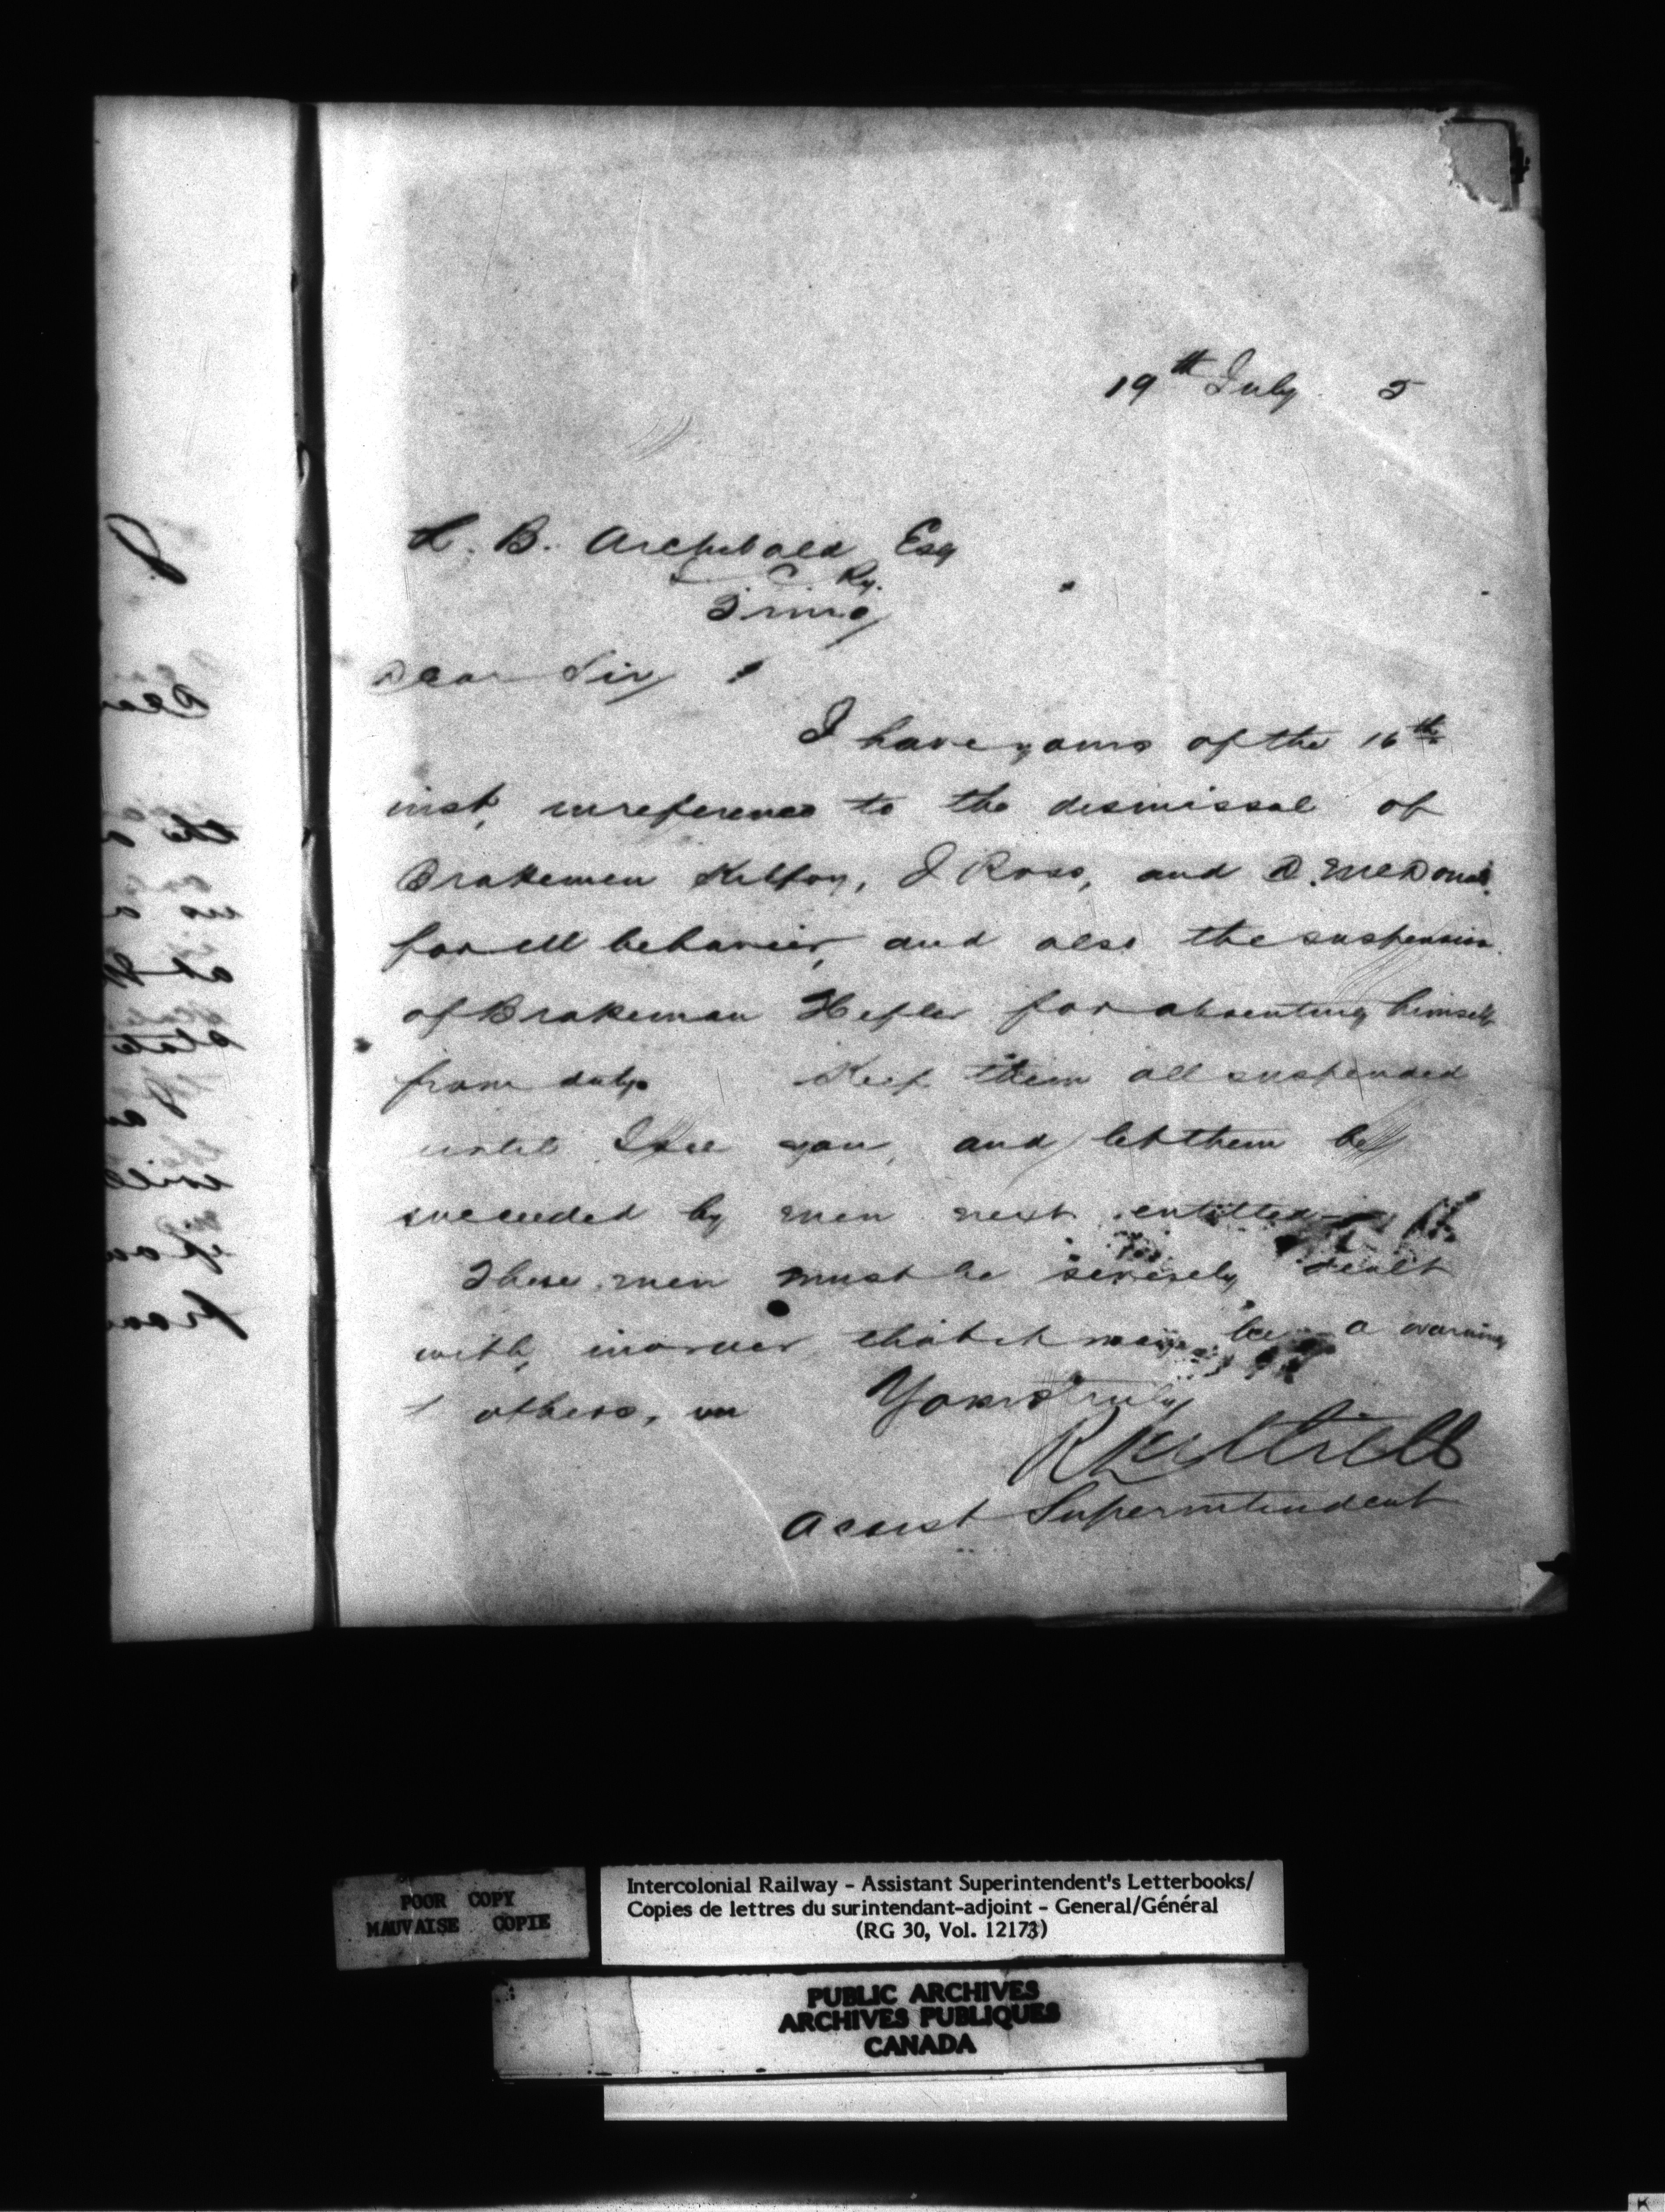 19th July 5
L. B. Archibald Esq
Ry.
Truro
Dear Sir
I have yours of the 16th
inst, in reference to the dismissal of
Brakemen J Ross, and D. McDonal
for ill behavior, and also the suspension
of Brakeman Hefler for absenting himself
from duty Keep them all suspended
until I see you, and let them be
succeeded by men next entitled
These men must be severely dealt
with, in order that it may be a warning
t others, on Yours truly
Assist Superintendent
POOR COPY
MAUVAISE COPIE
Intercolonial Railway - Assistant Superintendent's Letterbooks/
Copies de lettres du surintendant-adjoint - General/Général
(RG 30, Vol. 12173)
PUBLIC ARCHIVES
ARCHIVES PUBLIQUES
CANADA